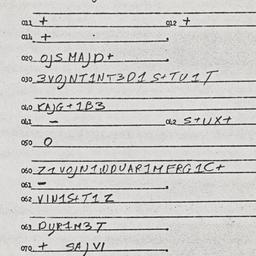 011 + 012 +
014 +
020 OJS MAJD+
030 3VOJNT1NT3D1 S+TU1T
040 KAJG+1B3
041 - 042 S+UX+
050 O
060 Z1VOJN1WDUAR1MFRG1C+
061 -
062 VIN1S+T1Z
063 DUR1M3T
070 + SAJVI